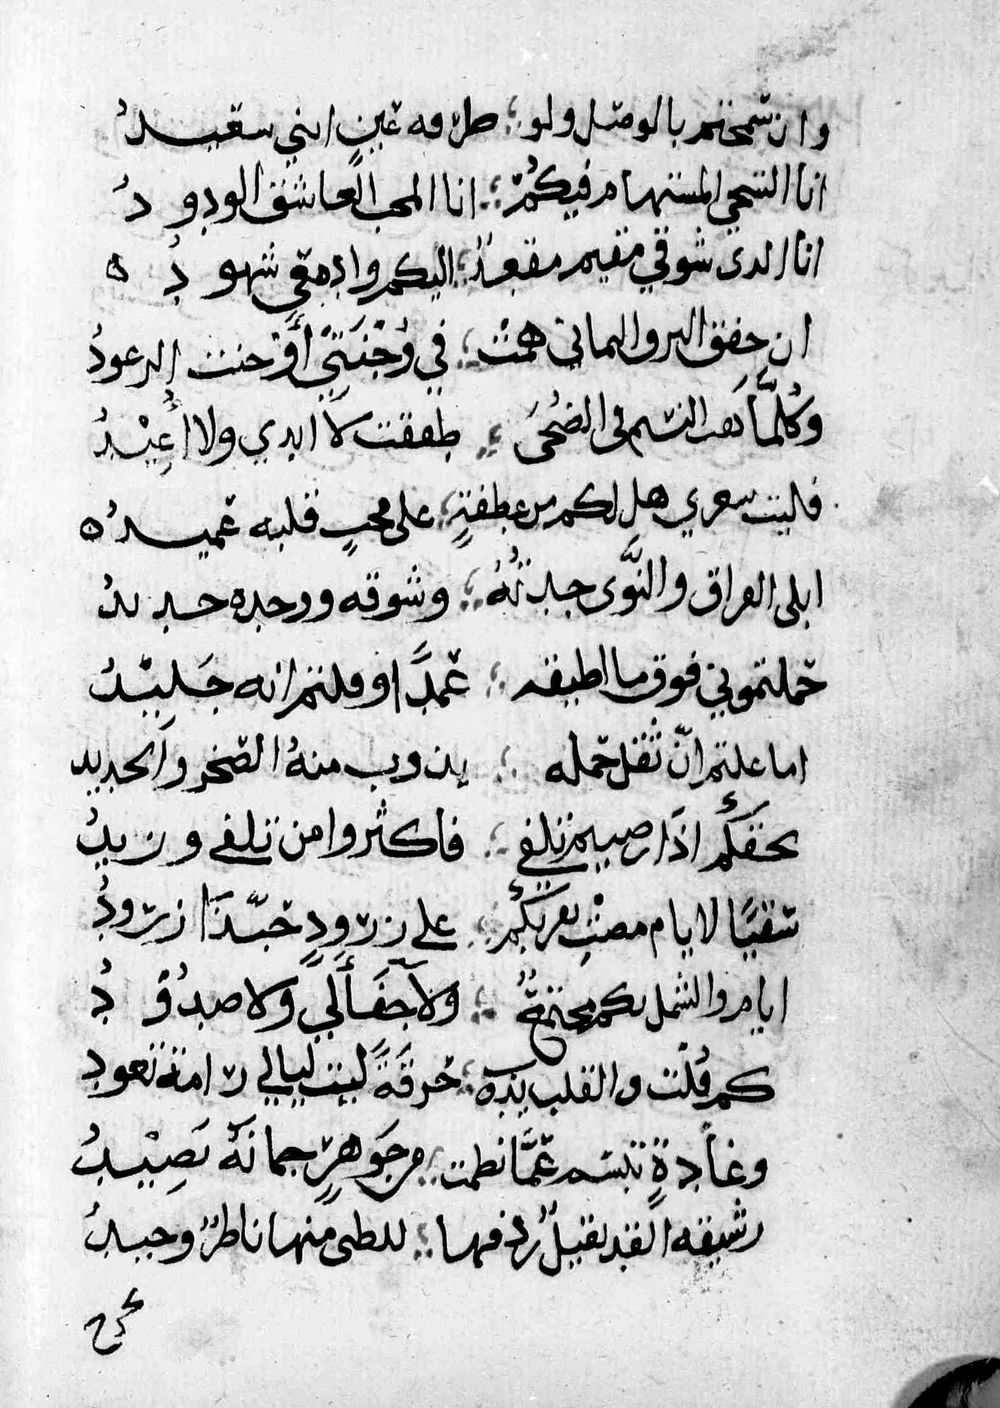 وان سمحتم بالوصل ولو ؛ طرفه عين انني سعيدُ
انا الشجي المستهام فيكُمْ ؛ انا المحب العاشق الودودُ
انا الذي شوقي مقيم مقعدٌ ؛ اليكم وادمعي شهودُ ه
ان خفق البرق اليماني همت ؛ في وَجْنَتِي أَوْ حنت الرعودُ
وَكُلَّمَا هب النسيم في الضُحَى ؛ طفقت لا ابدي ولا اُعِيْدُ
فليت شعري هل لكم من عطفةٍ ؛ على محبٍ قلبه عميدُ ه
ابلى الفراق والنَّوَى جِدتُهُ ؛ وشوقه ووجده جديدُ
حملتموني فوق ما اطيقه ؛ عَمْدًا وقلتم انه جَلِيْدُ
اما علمتم انّ ثقل حمله ؛ يذوب منهُ الصخر والحديد
بحقكم اذا رضيتم تلفي ؛ فاكثروا من تلفي وزيدُ
سقيًا لايام مضت بقربكُم ؛ على زرودٍ حبّذا زرودُ
ايام والشمل بكم مجتمعٌ ؛ ولا جفا لي ولا صدُوْدُ
كم قُلْت والقلب يذوب حرقَةً ليت ليالي رامة تعود
وغادةٍ تبسم عمَّا نظمت ؛ من جَوهرٍ جمانَهُ نَضِيْدُ
رشيقه القد ثقيلٌ ردفها ؛ للظبي منها ناظرٌ وجيدُ